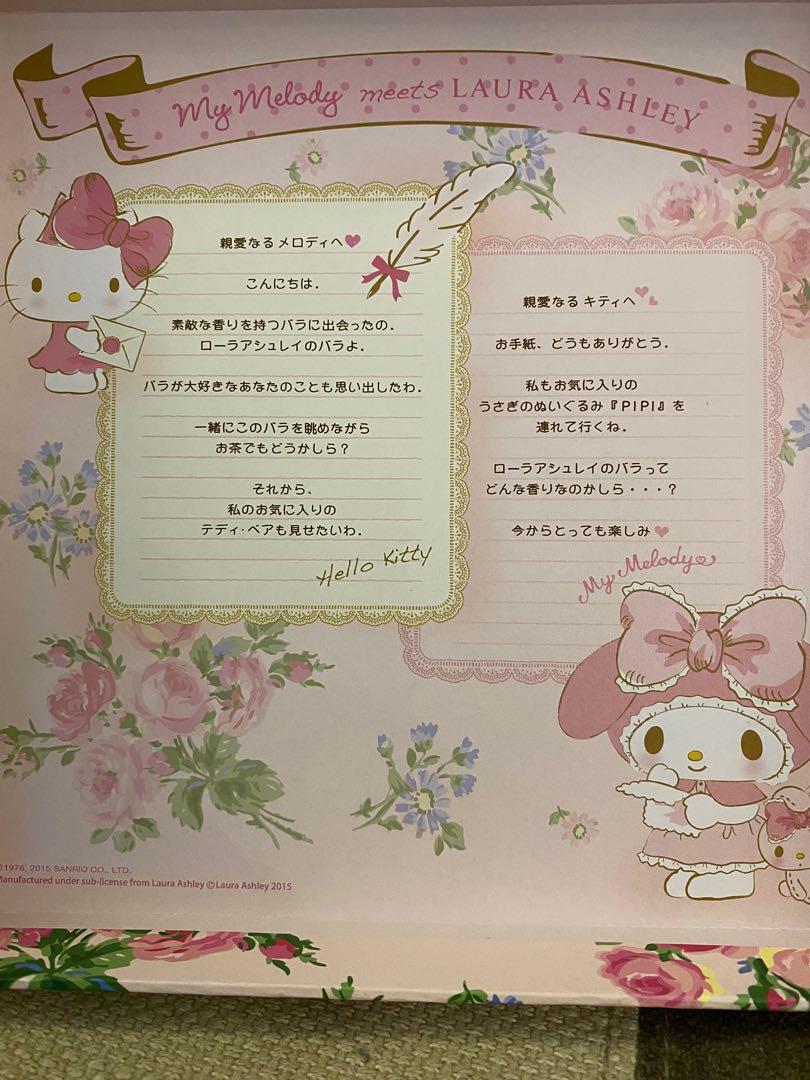 My Melody meets LAURA ASHLEY
親愛なる メロディへ
こんにちは.
素敵な香りを持つバラに出会ったの.
ローラアシュレイのバラよ.
バラが大好きなあなたのことも思い出したわ.
一緒にこのバラを眺めながら
お茶でもどうかしら？
それから、
私のお気に入りの
テディ・ベアも見せたいわ.
Hello Kitty
親愛なる キティへ
お手紙、どうもありがとう.
私もお気に入りの
うさぎのぬいぐるみ『PIPI』を
連れて行くね.
ローラアシュレイのバラって
どんな香りなのかしら・・・？
今からとっても楽しみ
My Melody
©1976, 2015 SANRIO CO., LTD.
Manufactured under sub-license from Laura Ashley ©Laura Ashley 2015